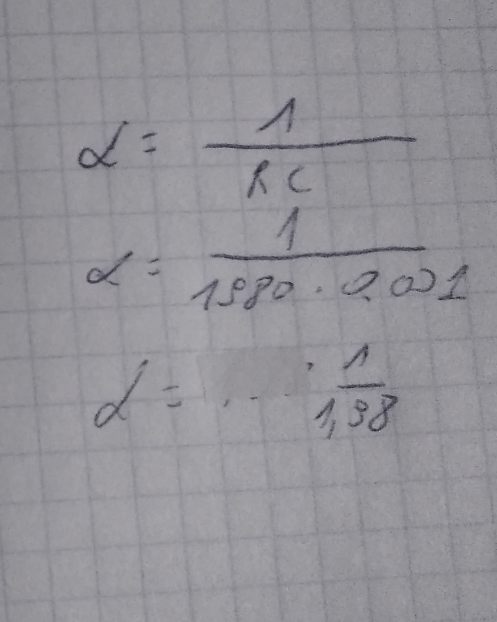 α = 1 / RC
α = 1 / 1980 · 0.001
α = ... · 1 / 1,98